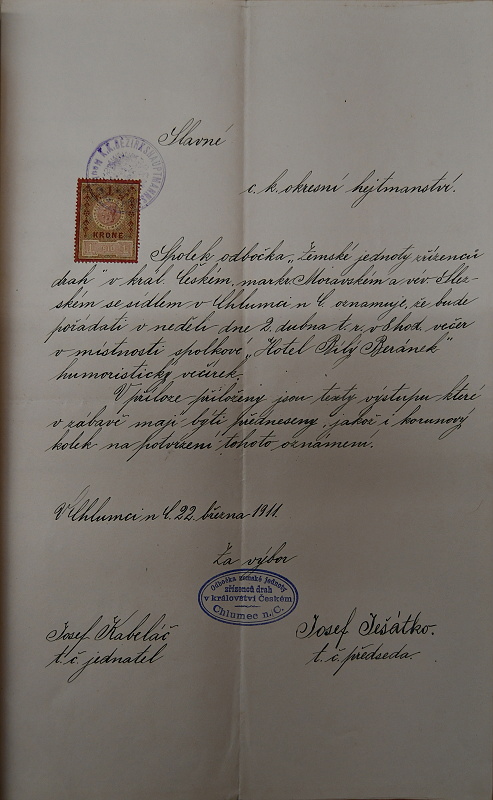 Slavné
c. k. okresní hejtmanství.
K.K. BEZIRKSHAUPTMANNS
KRONE
Spolek odbočka „Zemské jednoty zřízenců
drah“ v král. Českém, markr. Moravském a vév. Slez-
ském se sídlem v Chlumci n C. oznamuje, že bude
pořádati v neděli dne 2. dubna t. r. v 8 hod. večer
v místnosti spolkové „Hotel Bílý Beránek“
humoristický večírek.
V příloze přiloženy jsou texty výstupu které
v zábavě mají býti předneseny, jakož i korunový
kolek na potvrzení tohoto oznámení.
V Chlumci n C. 22. března 1911.
Za výbor
Odbočka zemské jednoty
zřízenců drah
v království Českém
Chlumec n. C.
Josef Kabeláč
t. č. jednatel
Josef Ješátko.
t. č. předseda.